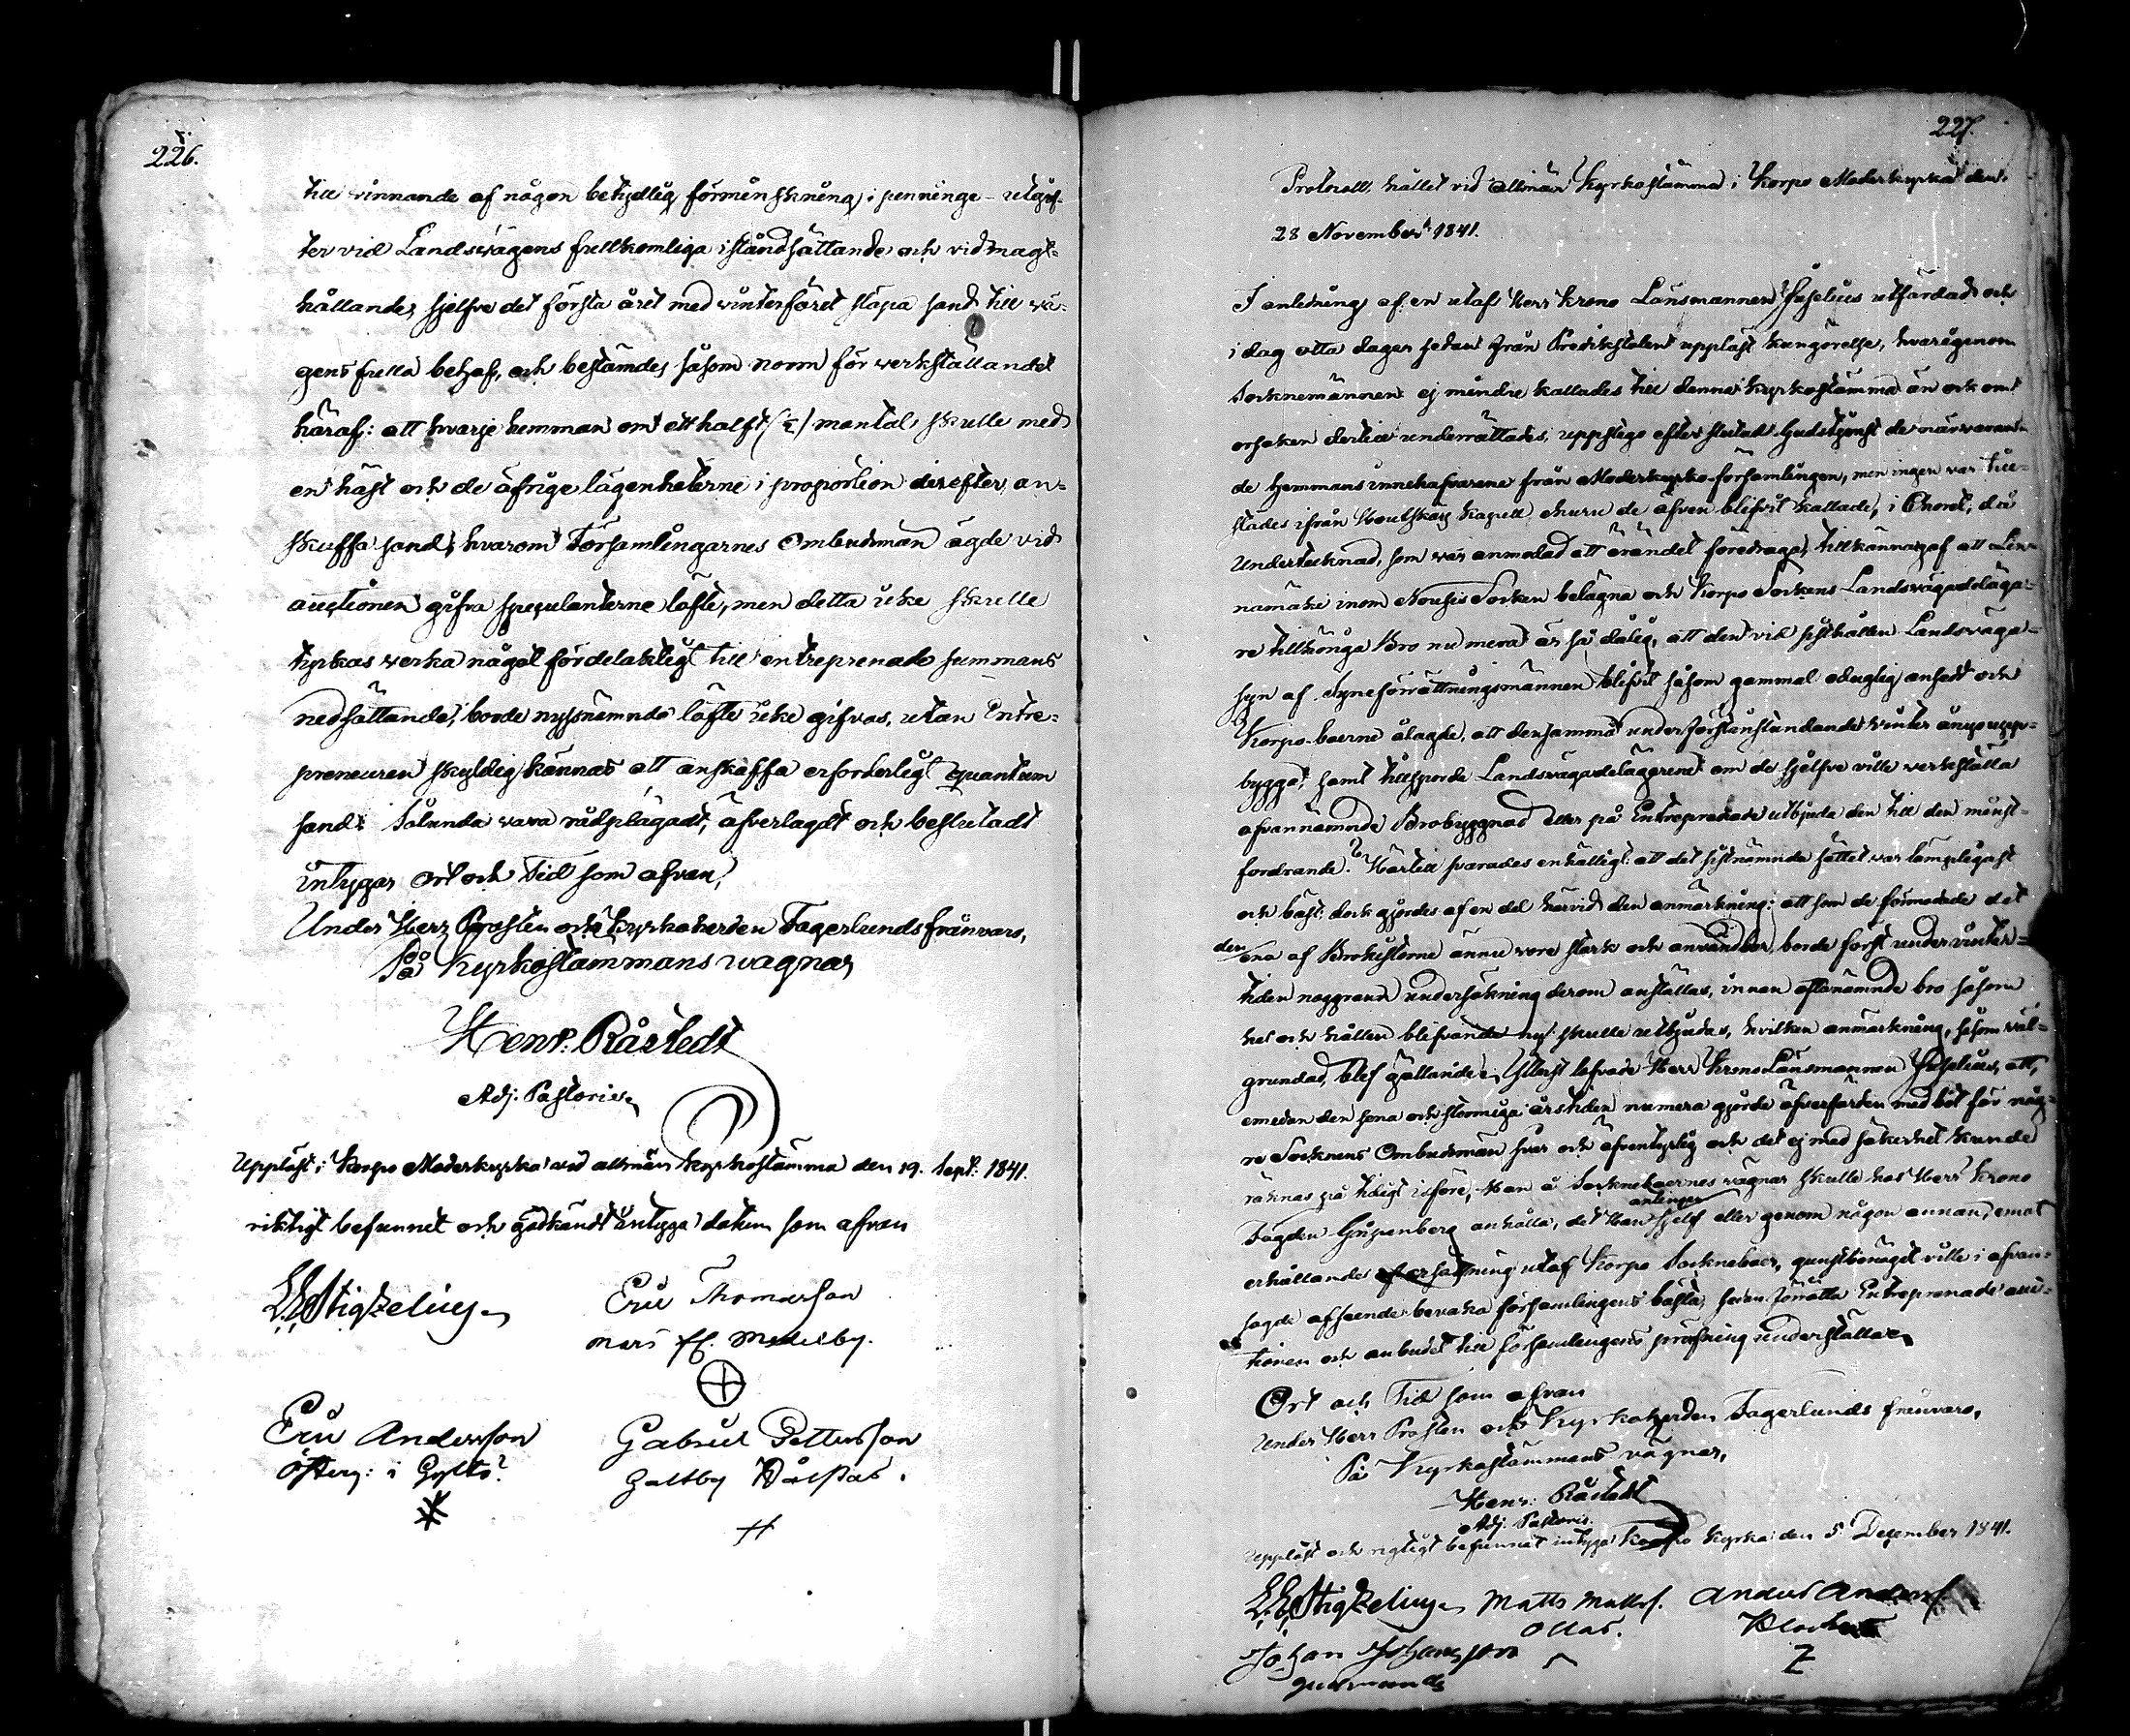 226.
till winnande af någon betydlig förminskning i penninge-utgif-
ter vid Landsvägens fullkomliga iståndsättande och vidmagt-
hållande, sjelfve det första året med vinterföret släpa sand till vä-
gens fulla behof, och bestämdes såsom norm för verkställandet
häraf: att hvarje hemman om ett halft (½) mantal skulle med
en häst och de öfrige lägenheterne i proportion derefter an-
skaffa sand, hvarom Församlingarnes Ombudsmän ägde vid
auctionen gifva speculanterne löfte, men detta icke skulle
tyckas verka något fördelaktigt till entreprenade summans
nedsättande, borde nyssnämnde löfte icke gifvas, utan Entre-
preneuren skyldig kännas att anskaffa erforderligt quantum
sand. Sålunda vara rådplägadt, öfverlagdt och beslutadt
intygar Ort och Tid som ofvan,
Under Herr Prosten och Kyrkoherden Fagerlunds frånvaro,
På Kyrkostämmans wägnar
Henr. Råstedt
Adj. Pastoris
Uppläst i Korpo Moderkyrka vid allmän Kyrkostämma den 19. Sept. 1841.
riktigt befunnet och godkändt intyga datum som ofvan
Stigzelius
Eric Thomasson
Mars
Eric Andersson
Österg: i Gyltö
Gabriel Pettersson
Galtby
227.
Protocoll, hållet vid allmän Kyrkostämma i Korpo Moderkyrka den
28 November 1841.
I anledning af en utaf Herr Krono Länsmannen utfärdad och
i dag otta dagar sedan från Predikstolen uppläst kungörelse, hvarigenom
Socknemännen ej mindre kallades till denna Kyrkostämma än ock om
orsaken dertill underrättades, uppstego efter slutad Gudstjenst de närvaran-
de hemmansinnehafvarene från Moderkyrko-församlingen, men ingen var till-
städes ifrån Houtskär Kapell ehuru de äfven blifvit kallade, i Choret, då
Undertecknad, som war anmodad att ärendet föredraga, tillkännagaf att
inom Nousis Socken belägna och Korpo Sockens Landsvägadelaga-
re tillhöriga Bro nu mera är så dålig, att den vid sisthållen Landsväga-
syn af Syneförrättningsmännen blifvit såsom gammal oduglig ansedd och
Korpo-boerne ålagde, att densamma under förstinstundande winter ånyo upp-
bygga, samt tillsporde Landsvägadelägarene om de sjelfve ville verkställa
ofvannämnde Brobyggnad eller på Entreprenad utbjuda den till den minst-
fordrande? Härtill svarades enhälligt: att det sistnämnda sättet var lämpligast
och bäst; dock gjordes af en del härvid den anmärkning: att som de förmodade det
den ena af Brokistorne ännu vore stark och användbar, borde först under vinter-
tiden noggrann undersökning derom anställas, innan oftanämnde bro såsom
hel och hållen blifvande ny skulle utbjudas, hvilken anmärkning, såsom väl-
grundad, blef gällande. Ytterst lofvade Herr Krono Länsmannen att,
emedan den sena och stormiga årstiden numera gjorde öfverfarten med båt för någ-
re Socknens Ombudsmän svår och äfventyrlig och det ej med säkerhet kunde
räknas på tidigt isföre, Han å Sockneboernes vägnar skulle hos Herr Krono
Fogden Gripenberg anhålla, det Han antingen sjelf eller genom någon annan, emot
erhållande ersättning utaf Korpo Sockneboer, gunstbenäget ville i ofvan-
sagde afseende bevaka församlingens bästa, sedan förrätta Entreprenade auc-
tionen och anbudet till församlingens pröfning underställa.
Ort och Tid som ofvan
Under Herr Prosten och Kyrkoherden Fagerlunds frånvaro,
På Kyrkostämmans vägnar,
Henr. Råstedt
Adj. Pastoris.
Uppläst och rigtigt befunnet intyga Korpo Kyrka den 5 December 1841.
Stigzelius Matts Matts. Anders Anders.
Ollas.
Johan Johansson